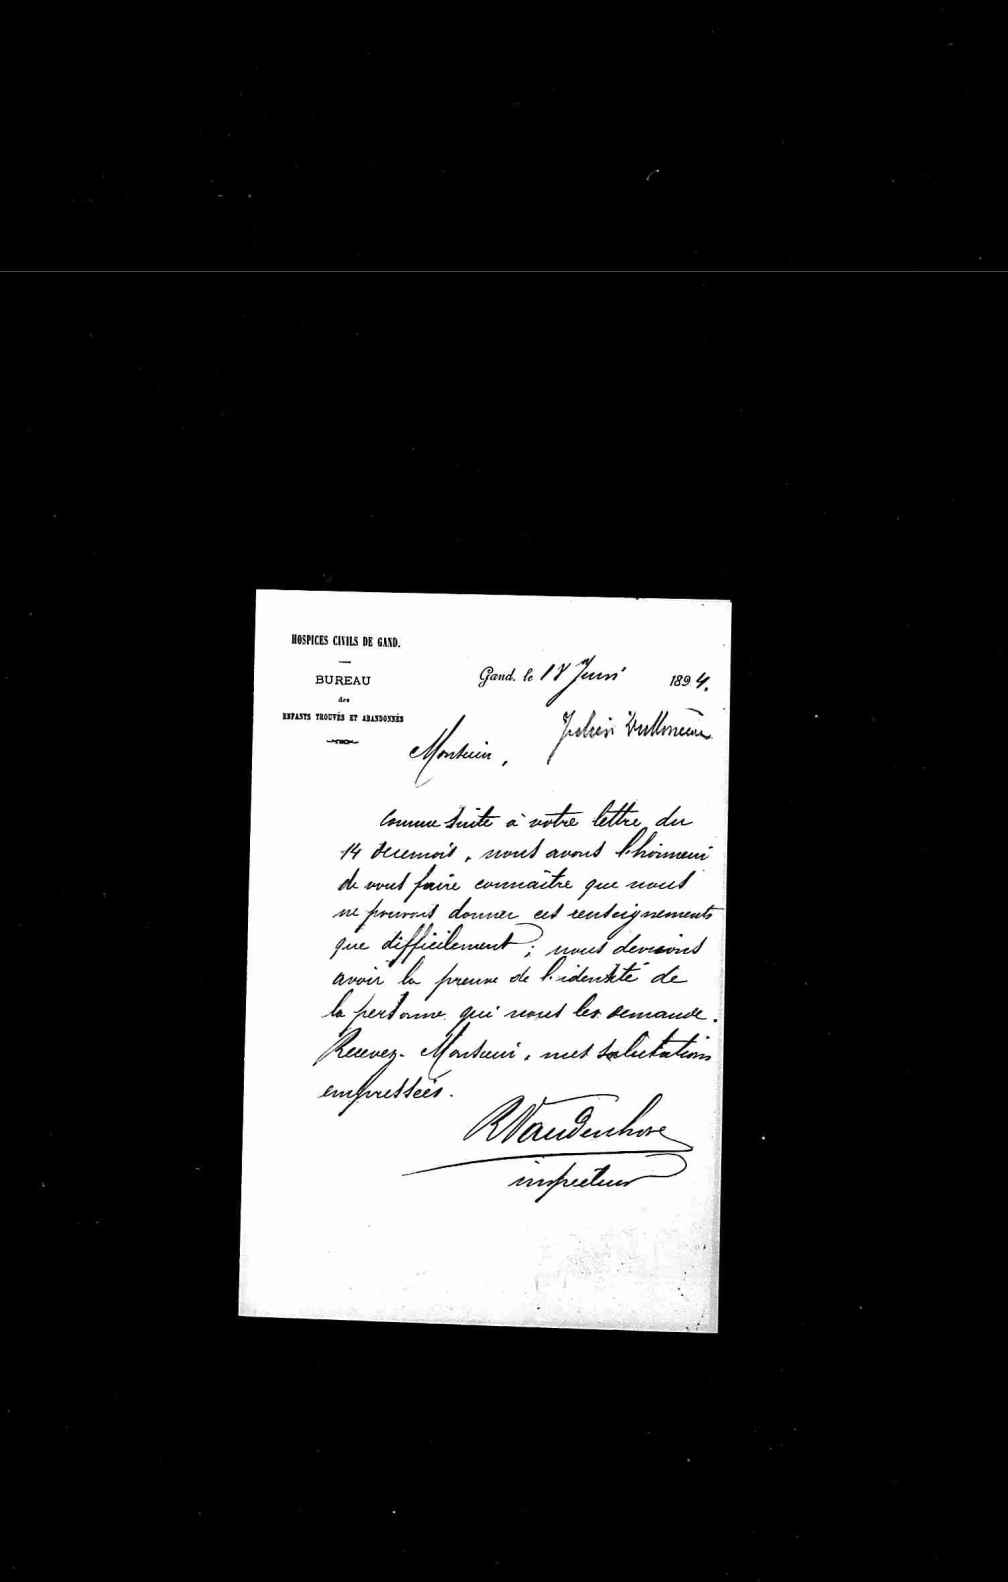 HOSPICES CIVILS DE GAND.
BUREAU
des
ENFANTS TROUVÉS ET ABANDONNÉS
Gand, le 18 Juin 1894.
Julien
Monsieur,
Comme suite à votre lettre du
14 de ce mois, nous avons l'honneur
de vous faire connaître que nous
ne pouvons donner ces renseignements
que difficilement; nous devrions
avoir la preuve de l'identité de
la personne qui nous les demande.
Recevez Monsieur, mes salutations
empressées.
R Vandenhove
inspecteur